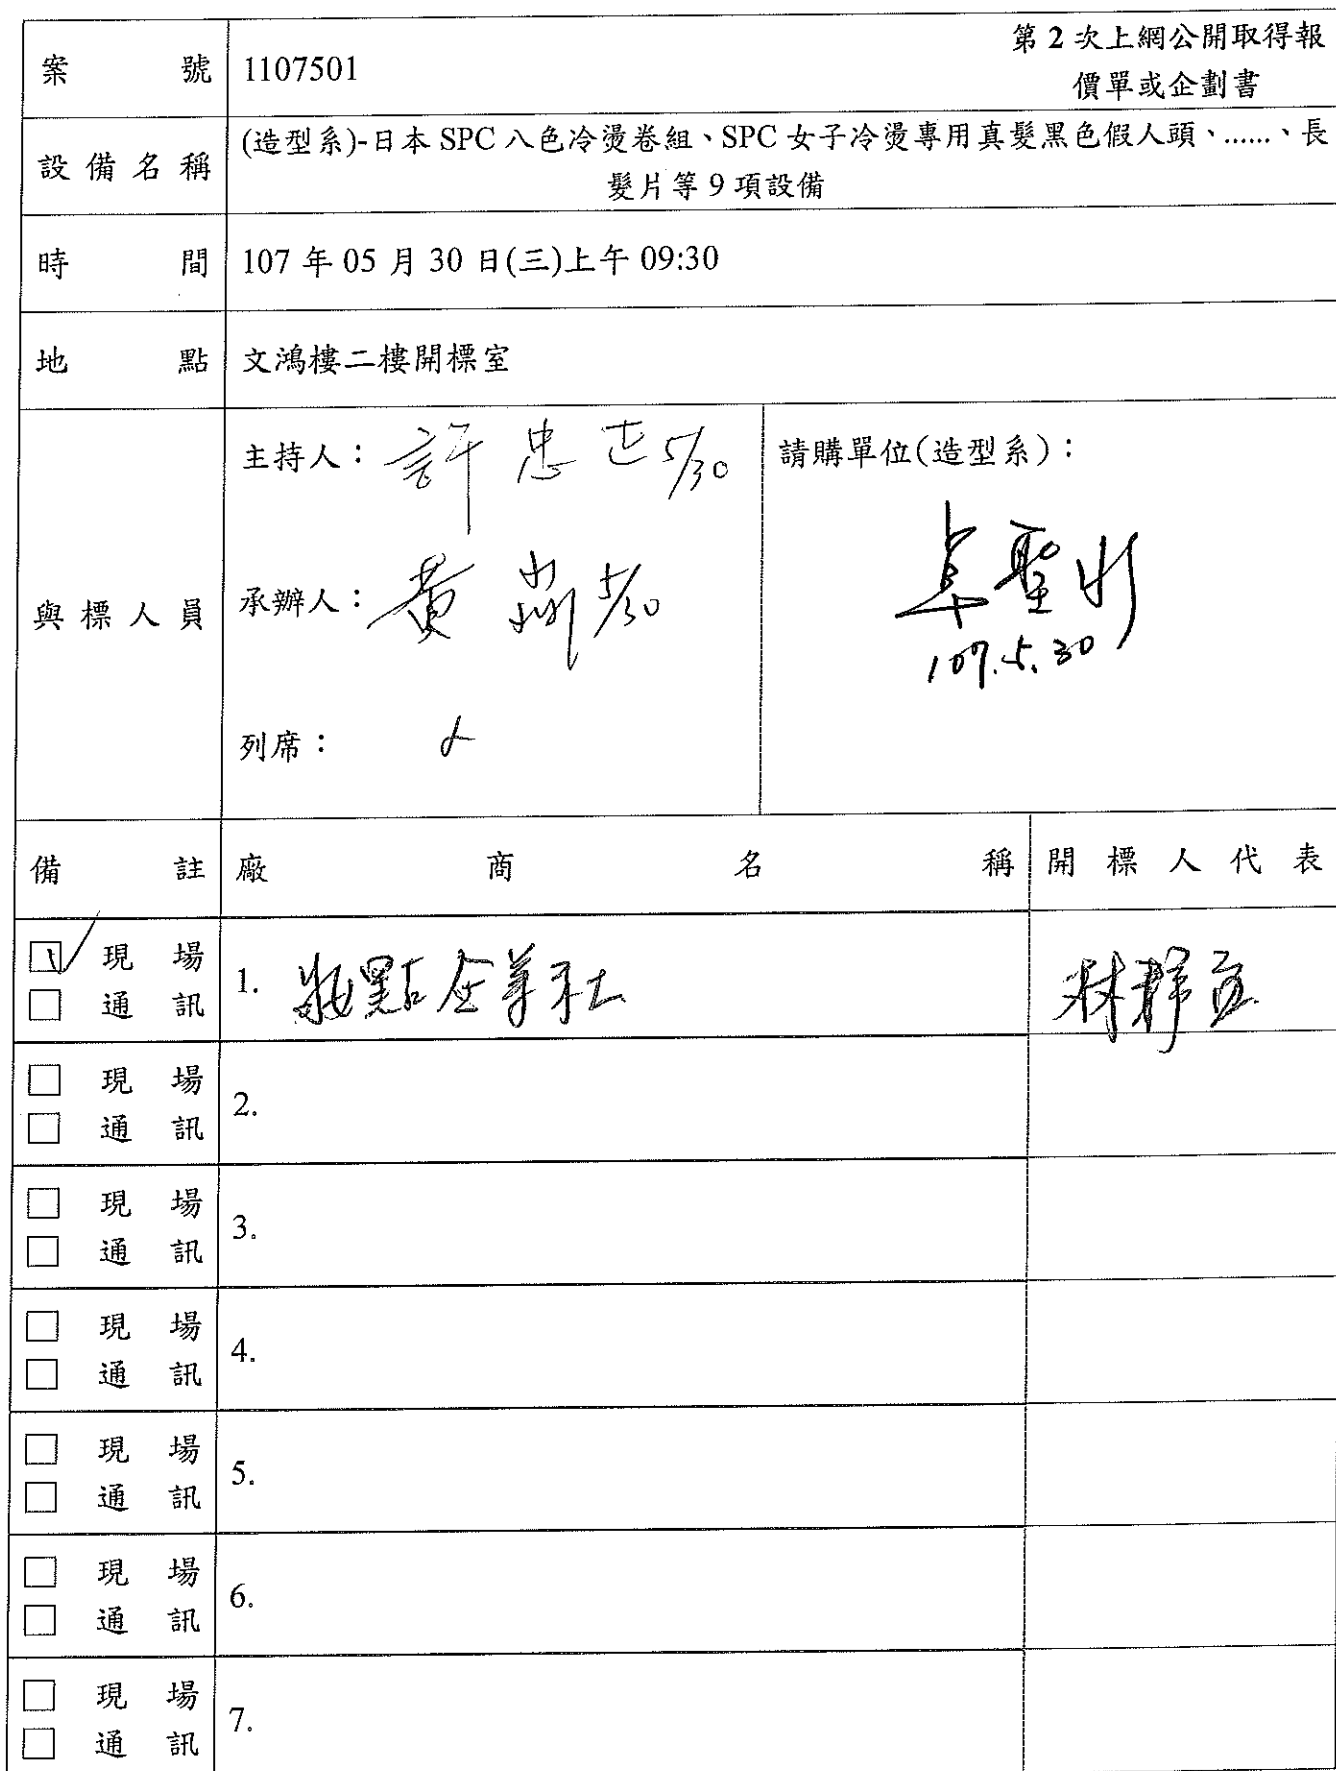 案號 1107501 第2次上網公開取得報
價單或企劃書
設備名稱 (造型系)-日本 SPC 八色冷燙卷組、SPC 女子冷燙專用真髮黑色假人頭、......、長
髮片等 9 項設備
時間 107 年 05 月 30 日(三)上午 09:30
地點 文鴻樓二樓開標室
與標人員
主持人：許忠 5/30
請購單位(造型系)：
承辦人：黃 5/30
107.5.30
列席：
備註 廠商名稱 開標人代表
現場 1. 妝點企業社 林
通訊
現場 2.
通訊
現場 3.
通訊
現場 4.
通訊
現場 5.
通訊
現場 6.
通訊
現場 7.
通訊